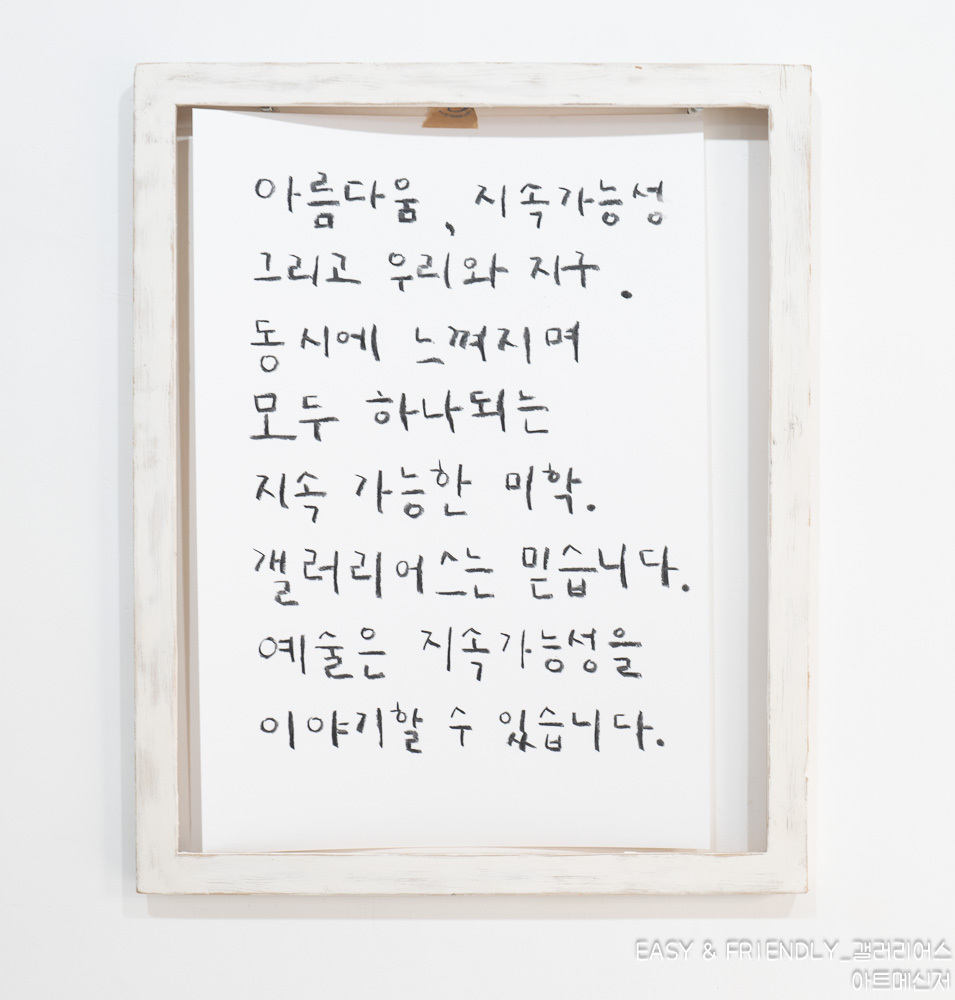 아름다움, 지속가능성
그리고 우리와 지구.
동시에 느껴지며
모두 하나되는
지속 가능한 미학.
갤러리어스는 믿습니다.
예술은 지속가능성을
이야기할 수 있습니다.
EASY & FRIENDLY_갤러리어스
아트메신저